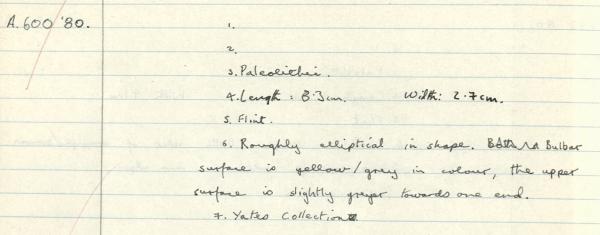 A.600 '80. 1.
2.
3. Paleolithic.
4. Length : 8.3cm. Width: 2.7cm.
5. Flint.
6. Roughly elliptical in shape. Bulbar
surface is yellow/grey in colour, the upper
surface is slightly greyer towards one end.
7. Yates Collection